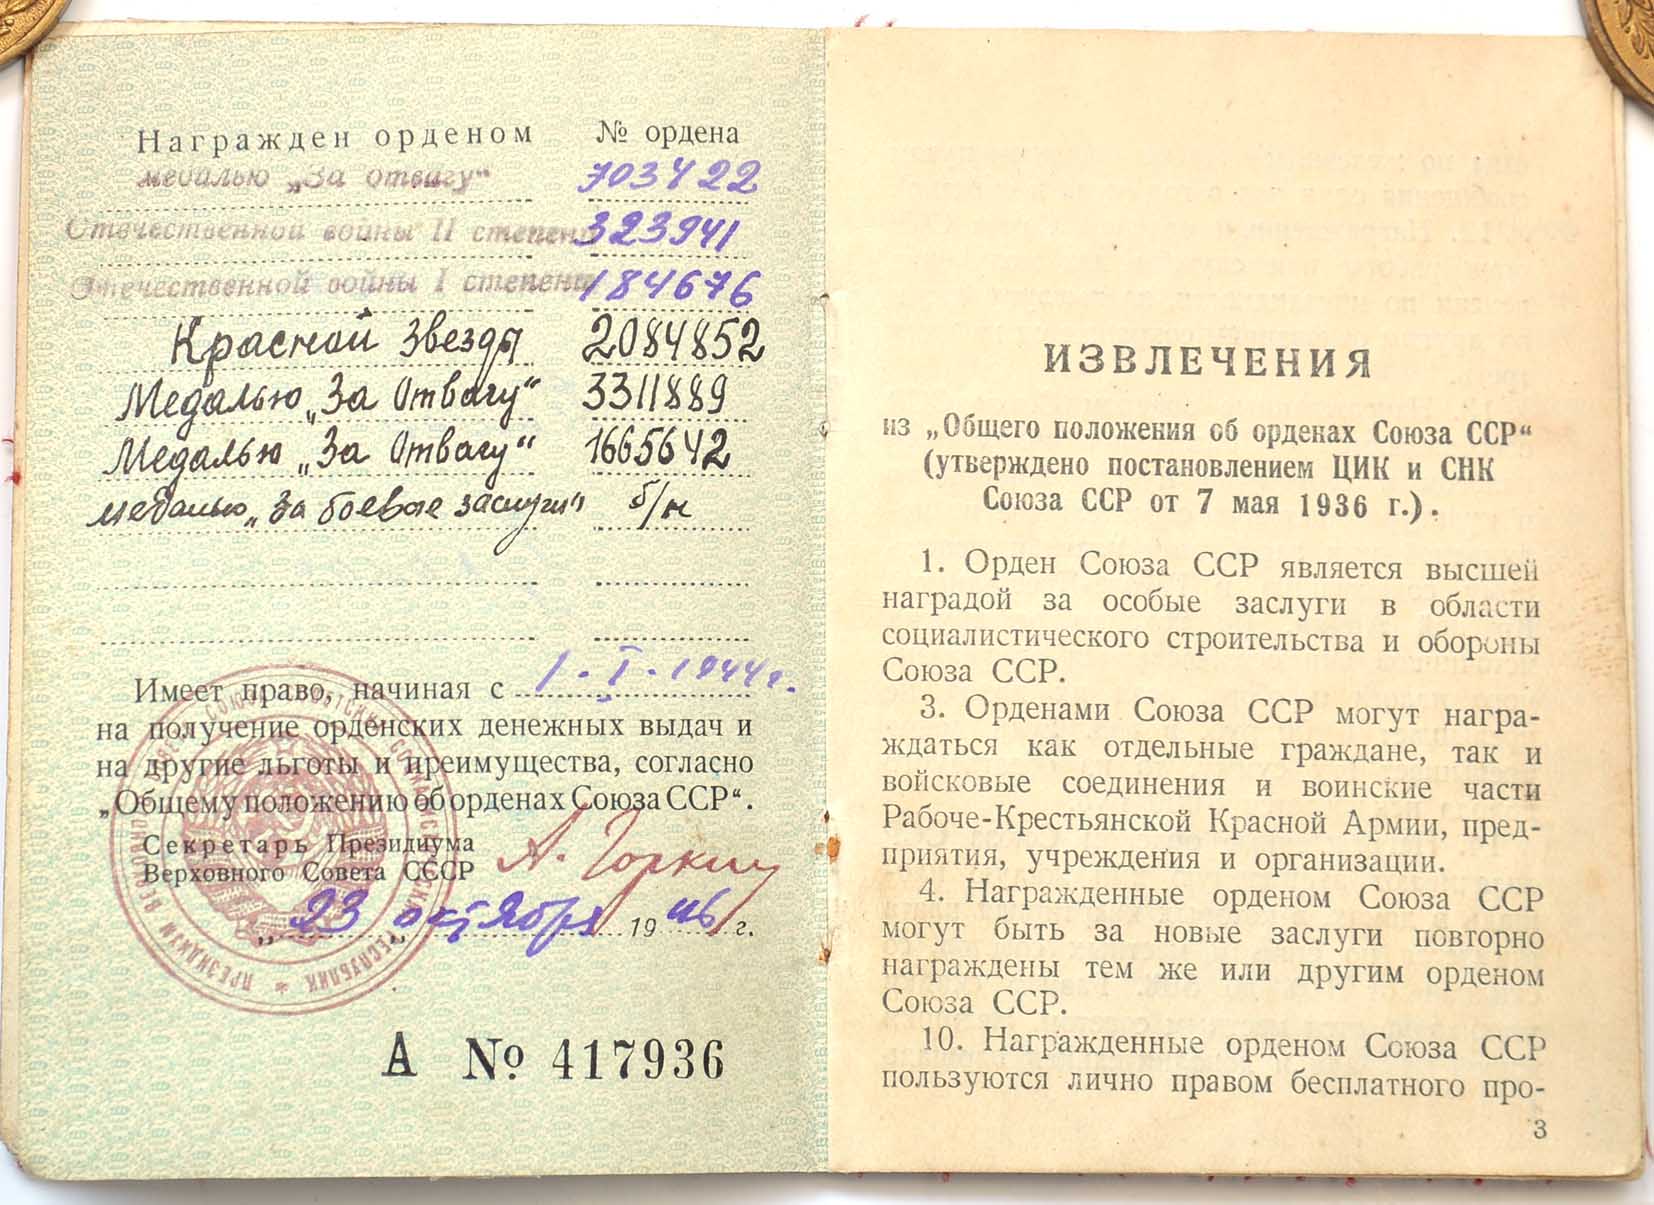 Награжден орденом № ордена
медалью „За отвагу“ 703422
Отечественной войны II степени 323941
Отечественной войны I степени 184676
Красной Звезды 2084852
Медалью „За Отвагу“ 3311889
Медалью „За Отвагу“ 1665642
медалью „За боевые заслуги“ б/н
Имеет право, начиная с 1.I.1944г.
на получение орденских денежных выдач и
на другие льготы и преимущества, согласно
„Общему положению об орденах Союза ССР“.
Секретарь Президиума
Верховного Совета СССР А. Горкин
„23 „ октября 1946 г.
А № 417936
ИЗВЛЕЧЕНИЯ
из „Общего положения об орденах Союза ССР“
(утверждено постановлением ЦИК и СНК
Союза ССР от 7 мая 1936 г.).
1. Орден Союза ССР является высшей
наградой за особые заслуги в области
социалистического строительства и обороны
Союза ССР.
3. Орденами Союза ССР могут награ-
ждаться как отдельные граждане, так и
войсковые соединения и воинские части
Рабоче-Крестьянской Красной Армии, пред-
приятия, учреждения и организации.
4. Награжденные орденом Союза ССР
могут быть за новые заслуги повторно
награждены тем же или другим орденом
Союза ССР.
10. Награжденные орденом Союза ССР
пользуются лично правом бесплатного про-
3